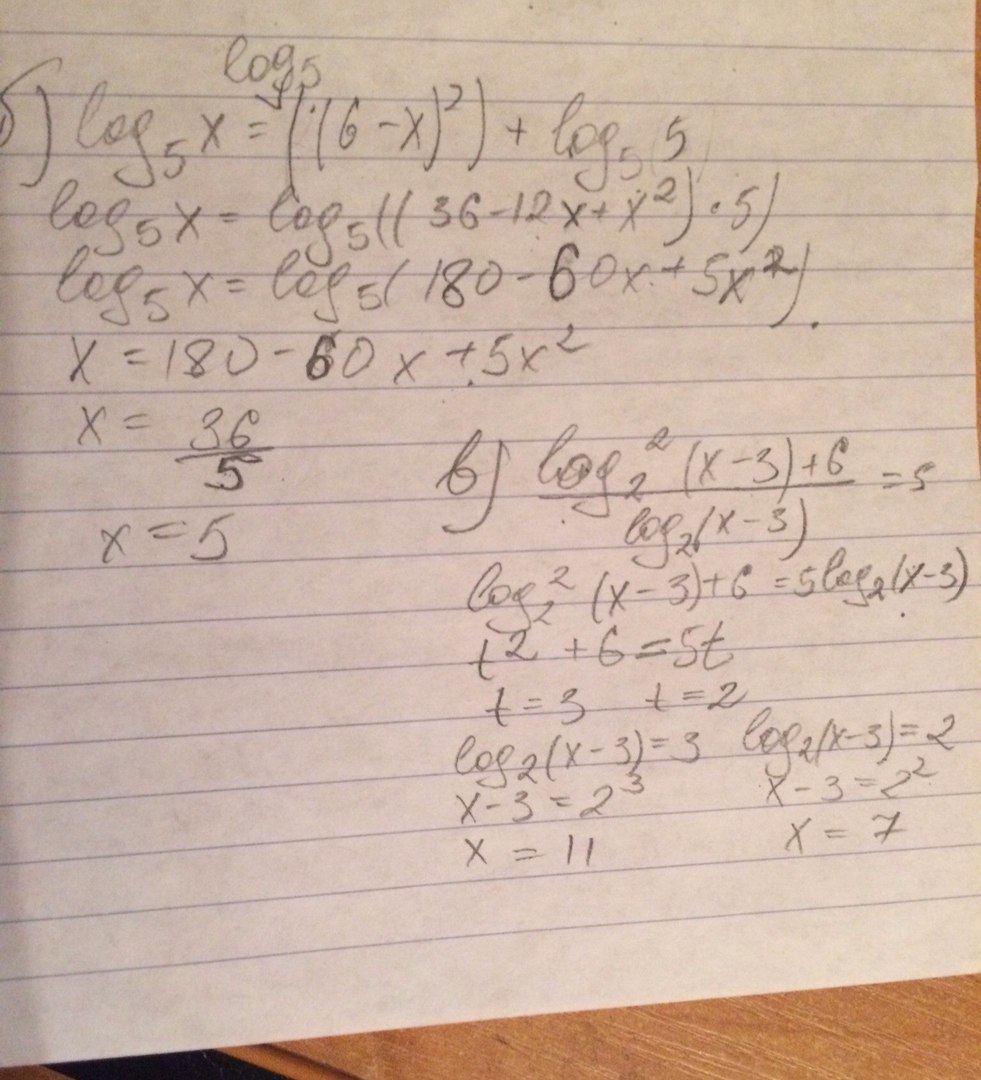 б) log₅ x = log₅ ((6 - x)²) + log₅ 5
log₅ x = log₅ ((36 - 12x + x²) · 5)
log₅ x = log₅ (180 - 60x + 5x²).
x = 180 - 60x + 5x²
x = 36/5
x = 5
в) (log₂² (x - 3) + 6)/(log₂ (x - 3)) = 5
log₂² (x - 3) + 6 = 5log₂ (x - 3)
t² + 6 = 5t
t = 3 t = 2
log₂ (x - 3) = 3 log₂ (x - 3) = 2
x - 3 = 2³ x - 3 = 2²
x = 11 x = 7